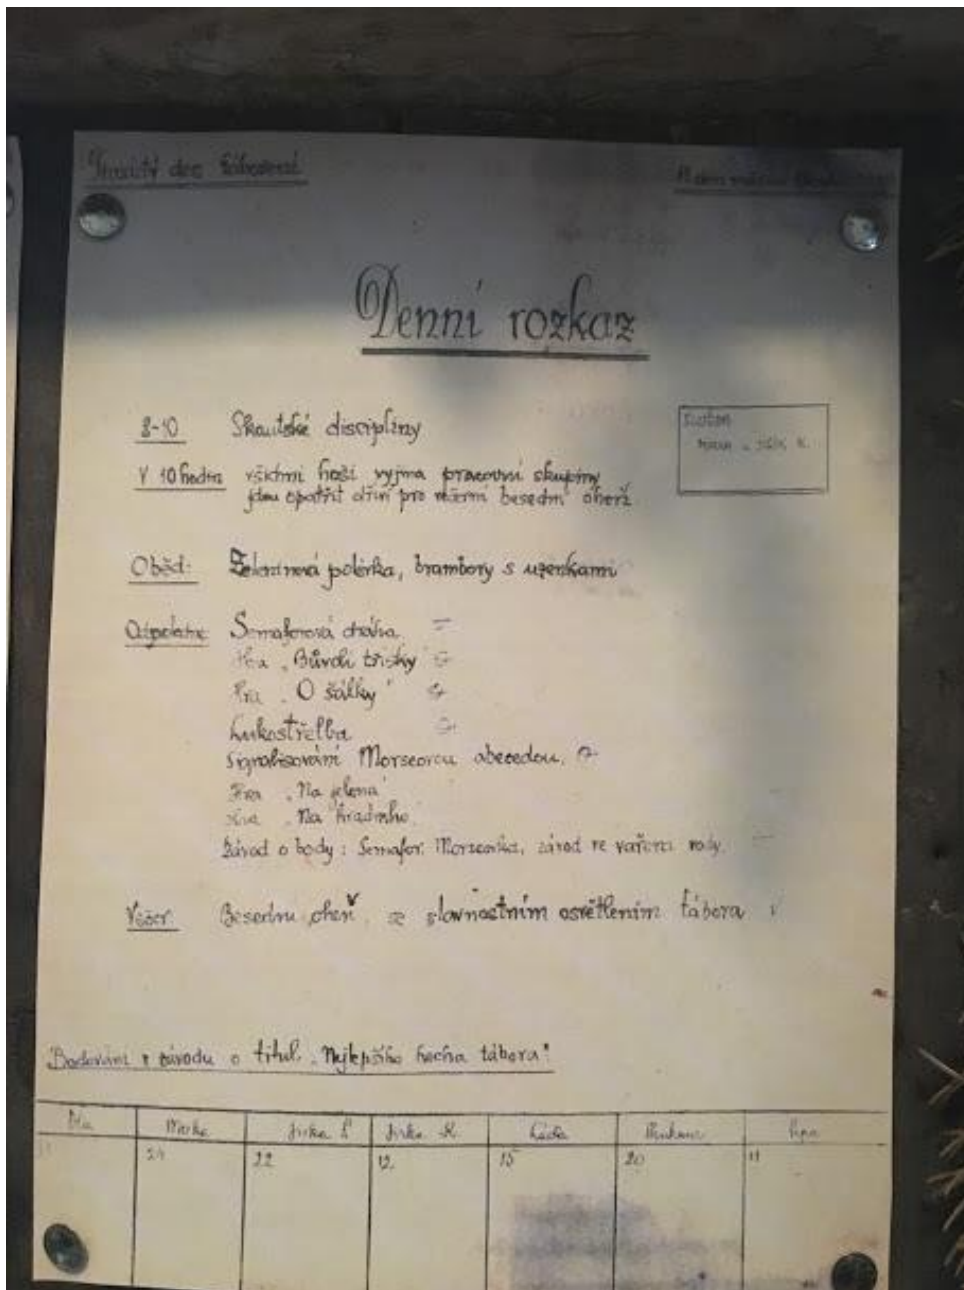 den táboření
Denní rozkaz
8-10 Skautské disciplíny
V 10 hodin všichni hoši vyjma pracovní skupiny
jdou opatřit dříví pro večerní besední oheň
Oběd: Zeleninová polévka, brambory s uzenkami
Odpoledne: Semaforová dráha
Hra „Bůvolí třísky"
Hra „O šátky"
Lukostřelba
Signalisování Morseovou abecedou.
Hra „Na jelena"
Hra „Na hradního
Závod o body: Semafor. Morseovka, závod ve vaření vody.
Večer: Besední oheň se slavnostním osvětlením tábora
Bodování z závodu o titul „Nejlepšího hocha tábora":
Mirko Jirka Jirka K. Láďa
24 22 12. 15 20 11